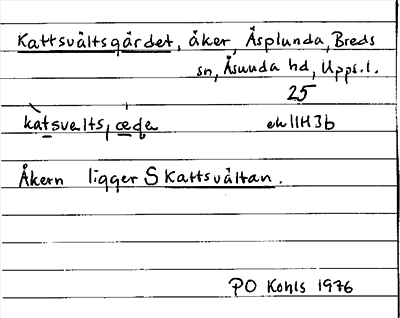 Kattsvältsgärdet, åker, Åsplunda, Breds
sn, Åsunda hd, Upps.l.
25
katsvelts, æda ek 11H3b
Åkern ligger S Kattsvältan.
PO Kohls 1976